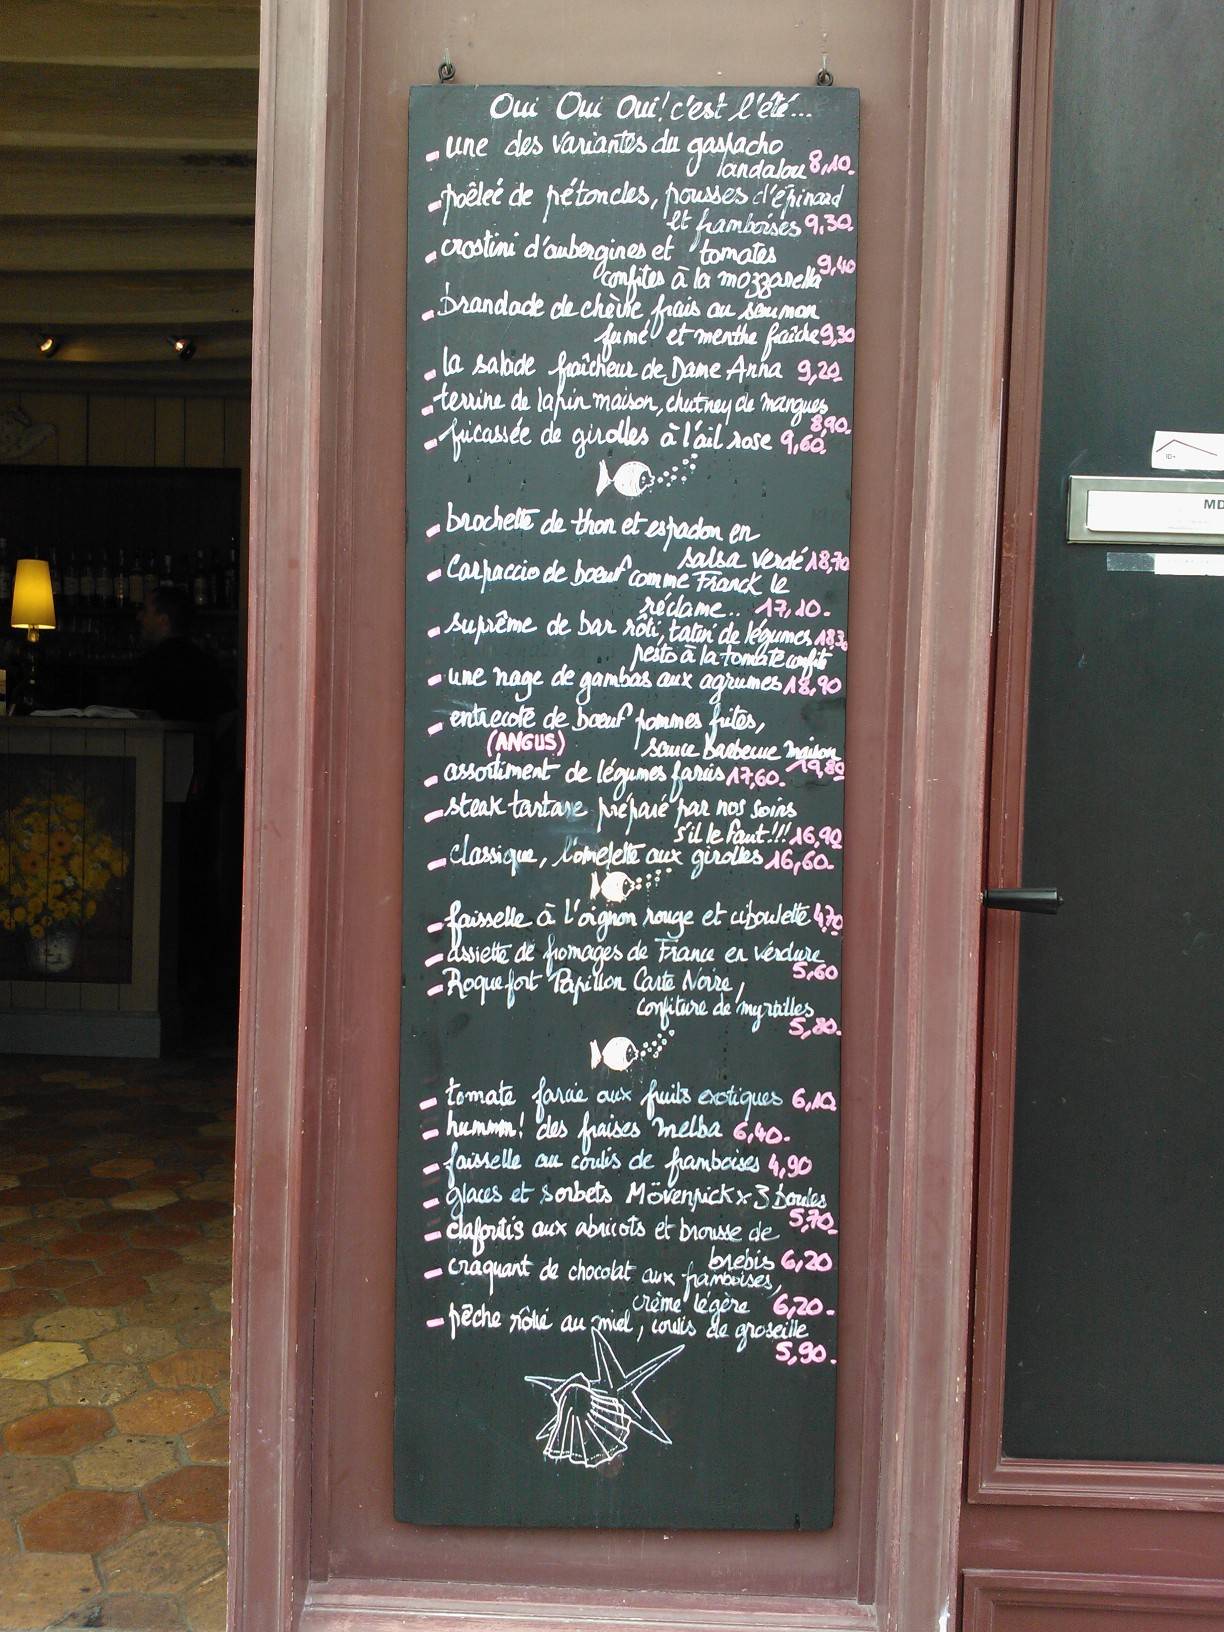 Oui Oui Oui! c'est l'été...
- une des variantes du gaspacho
andalou 8,10.
- poêleé de pétoncles, pousses d'épinard
et framboises 9,30.
- crostini d'aubergines et tomates
confites à la mozzarella 9,40
- brandade de chèvre frais au saumon
fumé et menthe fraîche 9,30
- la salade fraîcheur de Dame Anna 9,20.
- terrine de lapin maison, chutney de mangues
8,90.
- fricassée de girolles à l'ail rose 9,60.
- brochette de thon et espadon en
salsa verdé 18,70
- Carpaccio de boeuf comme Franck le
réclame.. 17,10.
- suprême de bar rôti, tatin de légumes 18,30
pesto à la tomate confite
- une nage de gambas aux agrumes 18,90
- entrecote de boeuf pommes frites,
(ANGUS) sauce barbecue maison
19,80
- assortiment de légumes farcis 17,60.
- steak tartare préparé par nos soins
s'il le faut!!! 16,90
- classique, l'omelette aux girolles 16,60.
- faisselle à l'oignon rouge et ciboulette 4,70
- assiette de fromages de France en verdure
5,60
- Roquefort Papillon Carte Noire,
confiture de myrtilles
5,80.
- tomate farcie aux fruits exotiques 6,10.
- hummm! des fraises Melba 6,40.
- faisselle au coulis de framboises 4,90
- glaces et sorbets Mövenpick x 3 boules
5,70.
- clafoutis aux abricots et brousse de
brebis 6,20
- craquant de chocolat aux framboises,
crème légère 6,20.
- pêche rôtie au miel, coulis de groseille
5,90.
ID+
MD